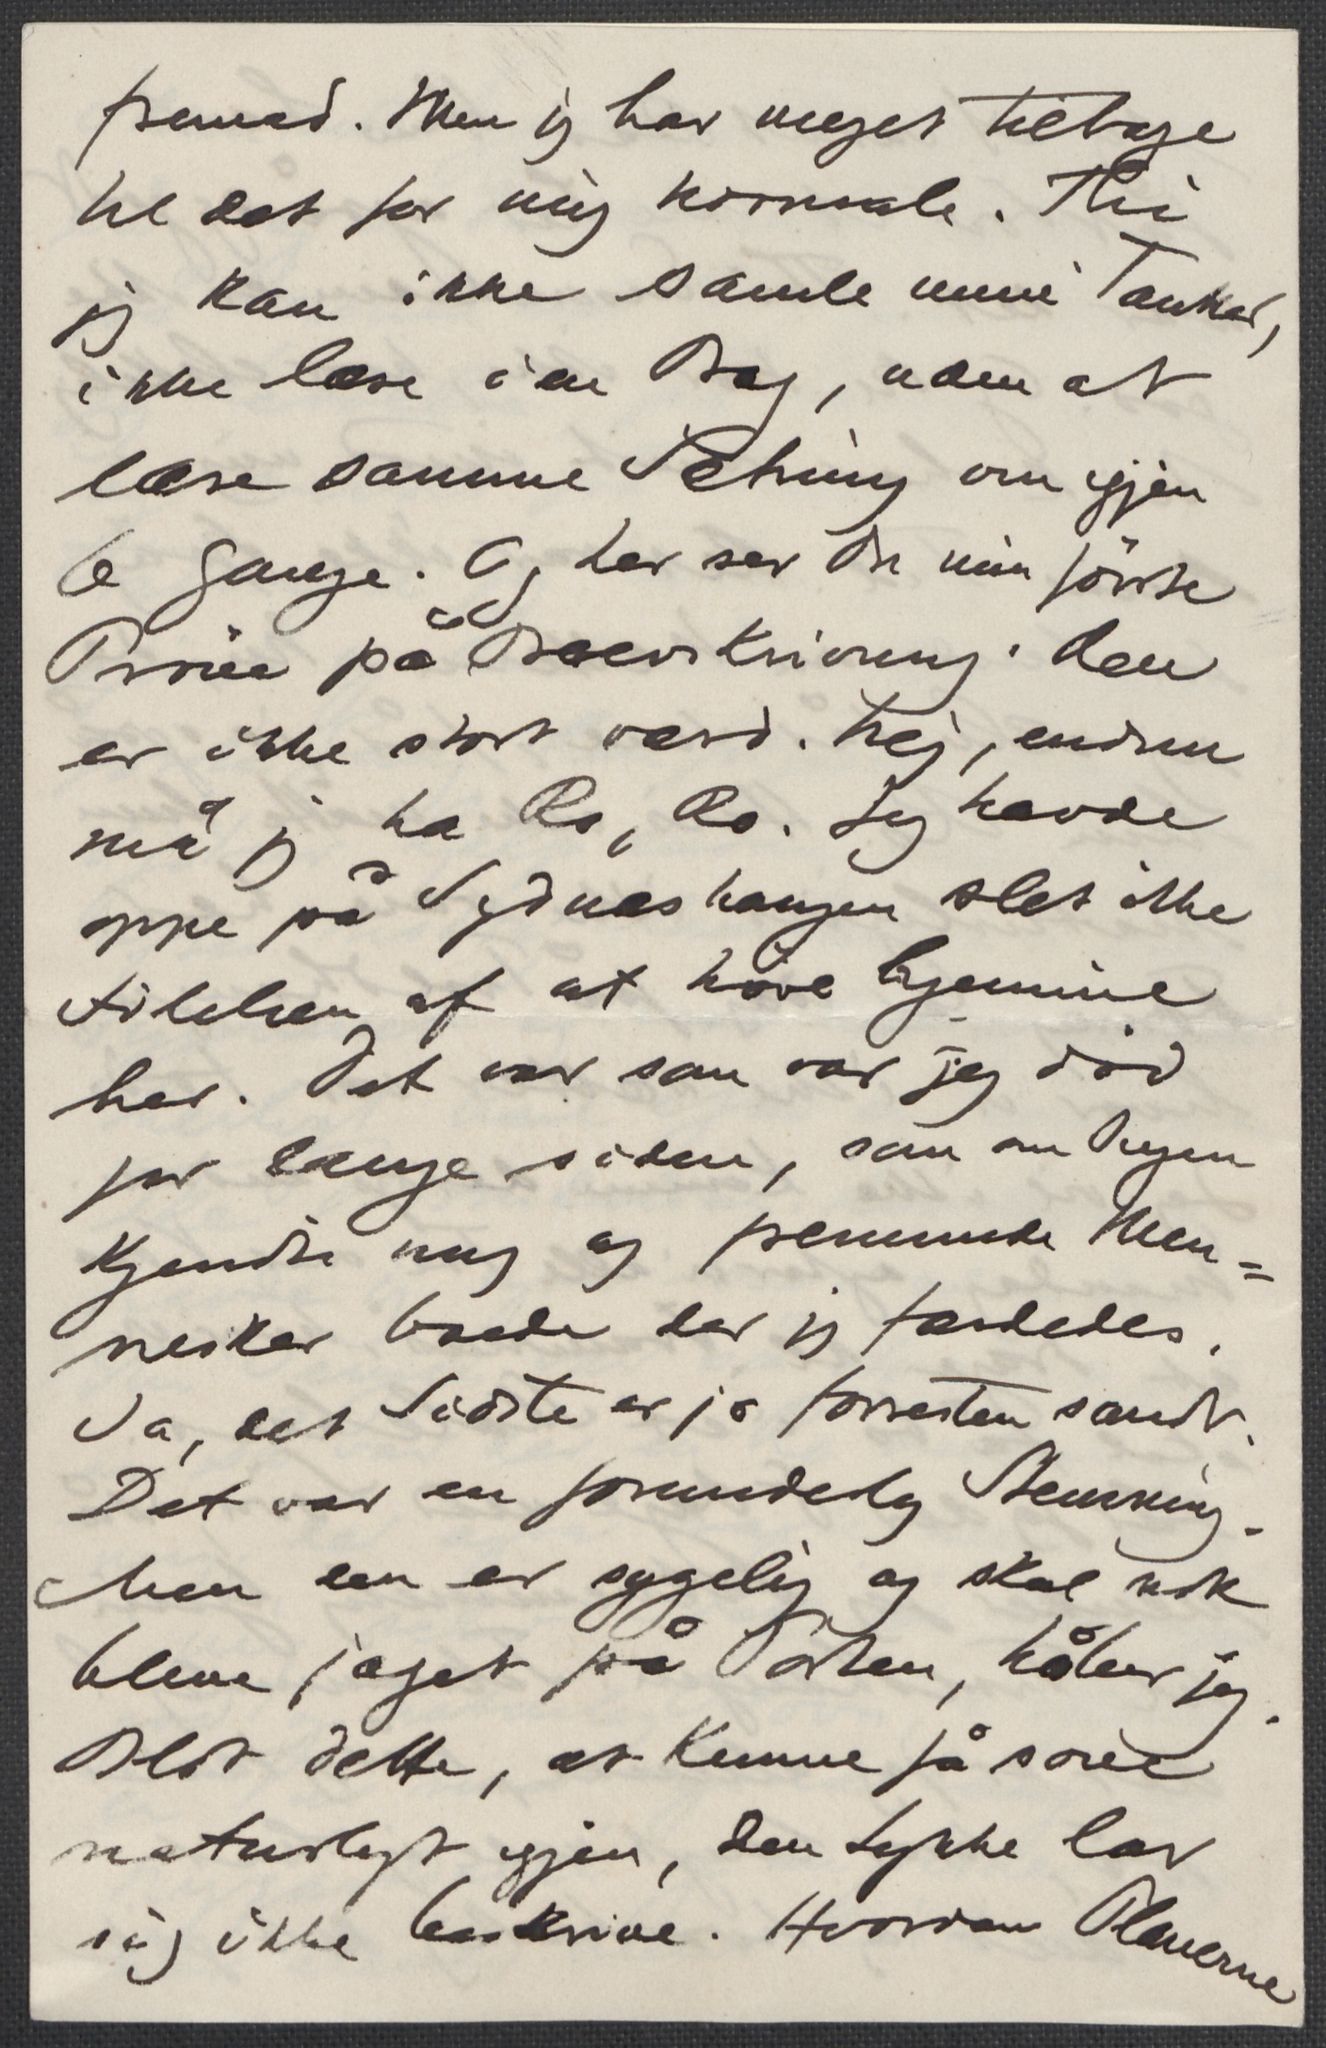 fremad. Men jeg har meget tilbage
til det for mig normale. Thi
jeg kan ikke samle mine Tanker,
ikke læse i en Bog, uden at
læse samme Sætning om igjen
6 Gange. Og her ser Du min første
Prøve på Brevskrivning. Den
er ikke stort værd. Nej, endnu
må jeg ha Ro, Ro. Jeg havde
oppe på Sydnæshaugen slet ikke
Følelsen af at høre hjemme
her. Det var som var jeg død
for længe siden, som om Ingen
kjendte mig og fremmede Men=
nesker boede der jeg færdedes.
Ja, det Sidste er jo forresten sandt.
Det var en forunderlig Stemning.
Men den er sygelig og skal nok
bleve jaget på Porten, håber jeg.
Blot dette, at kunne få sove
naturligt igjen, den Lykke lar
sig ikke beskrive. Hvordan Planerne